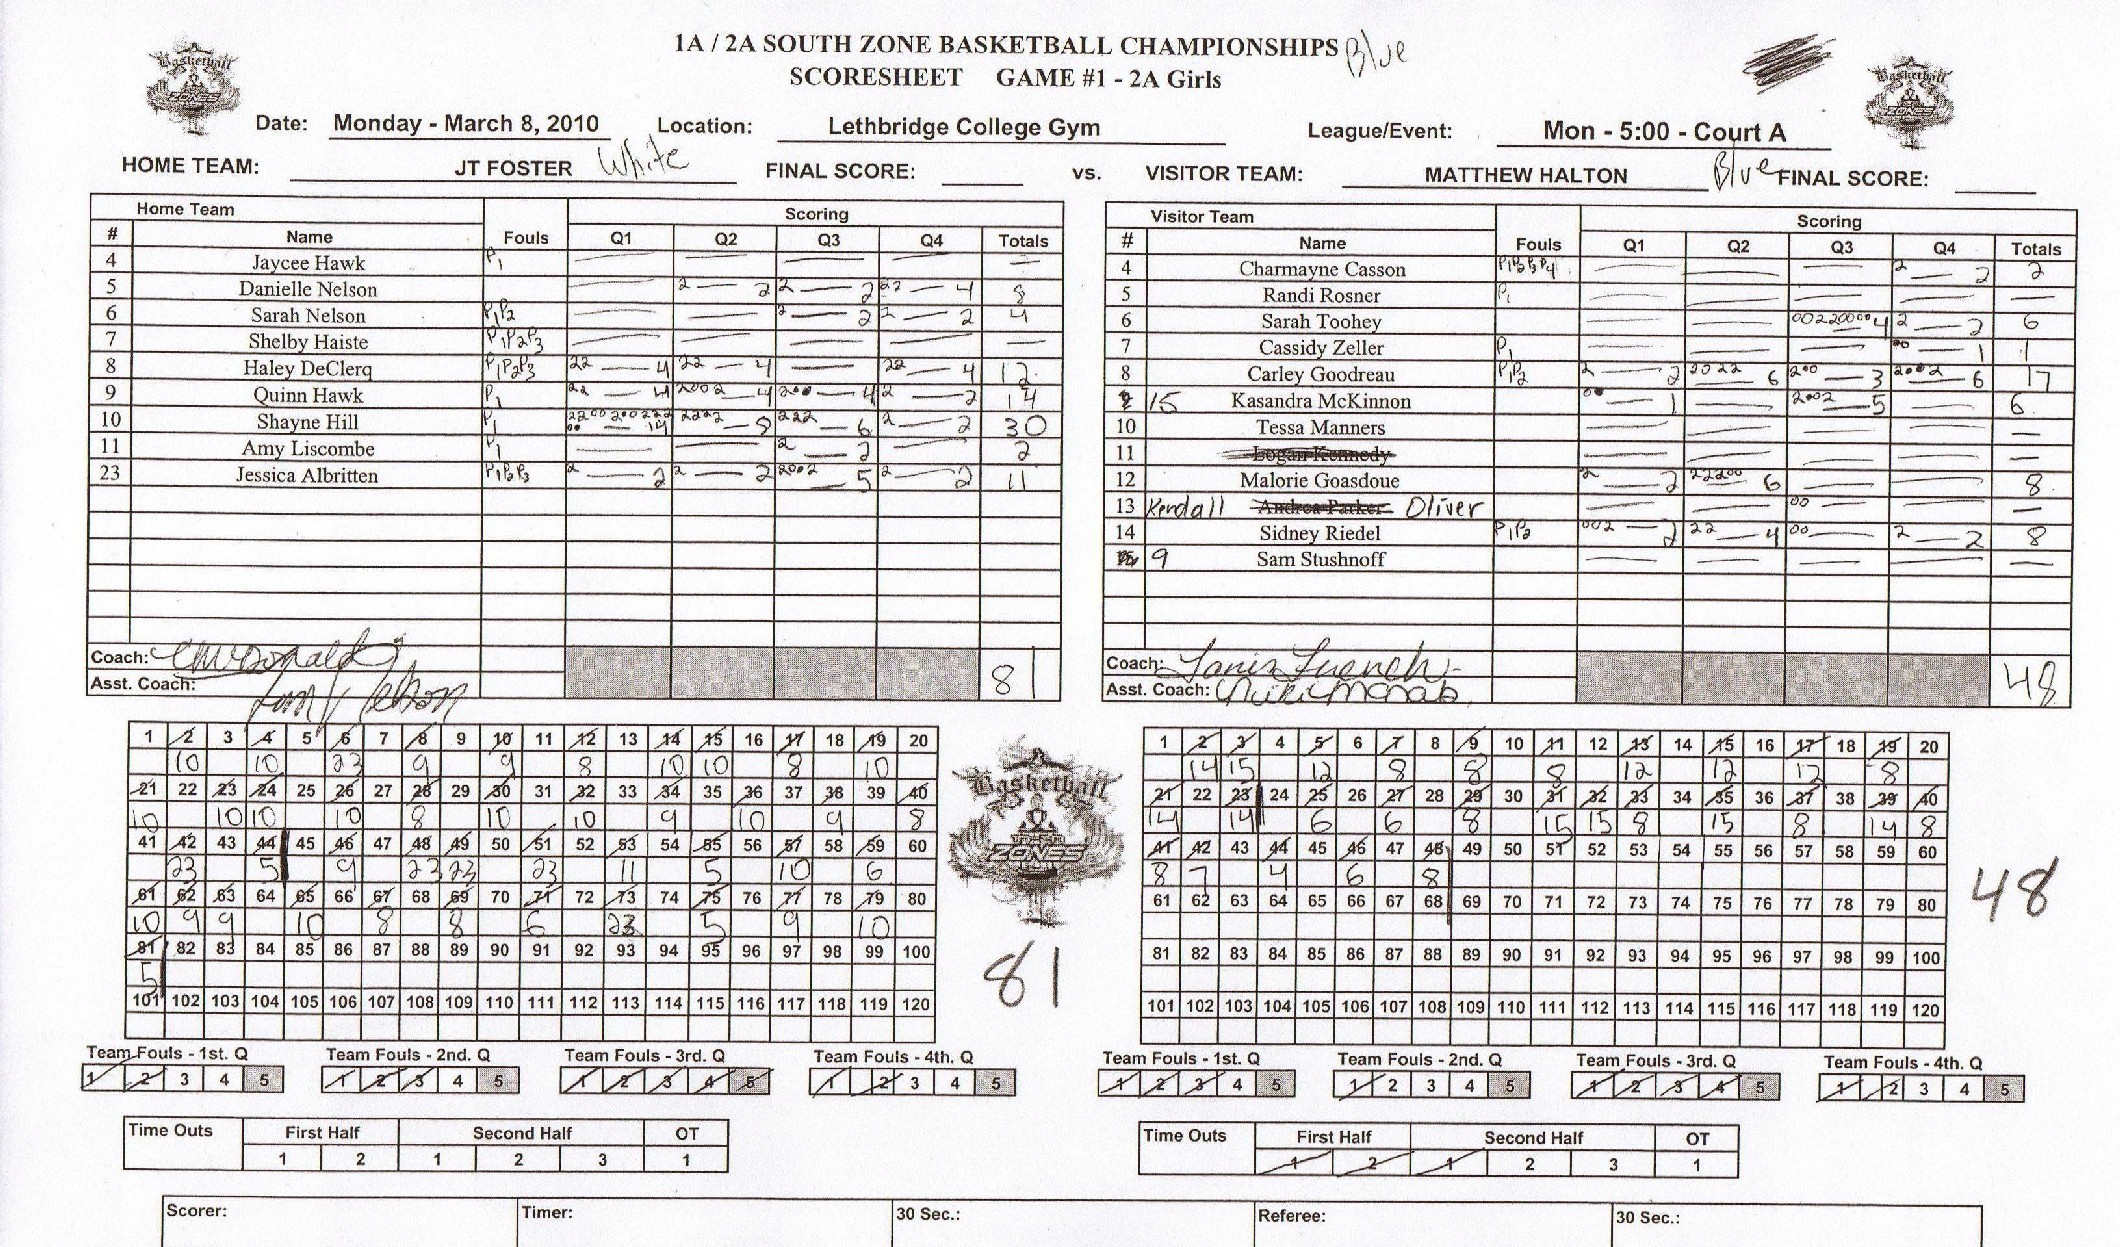 1A / 2A SOUTH ZONE BASKETBALL CHAMPIONSHIPS Blue
SCORESHEET GAME #1 - 2A Girls
Basketball ZONES
Basketball ZONES
Date: Monday - March 8, 2010 Location: Lethbridge College Gym League/Event: Mon - 5:00 - Court A
HOME TEAM: JT FOSTER White FINAL SCORE: vs. VISITOR TEAM: MATTHEW HALTON Blue FINAL SCORE:
Home Team Scoring
# Name Fouls Q1 Q2 Q3 Q4 Totals
4 Jaycee Hawk P1 — — — — —
5 Danielle Nelson — 2 — 2 2 — 2 22 — 4 8
6 Sarah Nelson P1P2 — — 2 — 2 2 — 2 4
7 Shelby Haiste P1P2P3 — — — — —
8 Haley DeClerq P1P2P3 22 — 4 22 — 4 — 22 — 4 12
9 Quinn Hawk P1 22 — 4 2002 — 4 200 — 4 2 — 2 14
10 Shayne Hill P1 — 14 2222 — 8 222 — 6 2 — 2 30
11 Amy Liscombe P1 — — 2 — 2 — 2
23 Jessica Albritten P1P2P3 2 — 2 2 — 2 2002 — 5 2 — 2 11
Coach:
Asst. Coach: 81
Visitor Team Scoring
# Name Fouls Q1 Q2 Q3 Q4 Totals
4 Charmayne Casson P1P2P3P4 — — — 2 — 2 2
5 Randi Rosner P1 — — — — —
6 Sarah Toohey — — 00220000 4 2 — 2 6
7 Cassidy Zeller P1 — — — 00 — 1 1
8 Carley Goodreau P1P2 2 — 2 2022 — 6 200 — 3 2002 — 6 17
15 Kasandra McKinnon 00 — 1 — 2002 — 5 — 6
10 Tessa Manners — — — — —
11 Logan Kennedy — — — — —
12 Malorie Goasdoue 2 — 2 22200 6 — — 8
13 Kendall Andrea Parker Oliver — — 00 — — —
14 Sidney Riedel P1P2 002 — 2 22 — 4 00 — 2 — 2 8
9 Sam Stushnoff — — — — —
Coach:
Asst. Coach: 48
1 2 3 4 5 6 7 8 9 10 11 12 13 14 15 16 17 18 19 20
10 10 23 9 9 8 10 10 8 10
21 22 23 24 25 26 27 28 29 30 31 32 33 34 35 36 37 38 39 40
10 10 10 10 8 10 10 9 10 9 8
41 42 43 44 45 46 47 48 49 50 51 52 53 54 55 56 57 58 59 60
23 5 9 23 23 23 11 5 10 6
61 62 63 64 65 66 67 68 69 70 71 72 73 74 75 76 77 78 79 80
10 9 9 10 8 8 6 23 5 9 10
81 82 83 84 85 86 87 88 89 90 91 92 93 94 95 96 97 98 99 100
5
101 102 103 104 105 106 107 108 109 110 111 112 113 114 115 116 117 118 119 120
Basketball ZONES
81
1 2 3 4 5 6 7 8 9 10 11 12 13 14 15 16 17 18 19 20
14 15 12 8 8 8 12 12 12 8
21 22 23 24 25 26 27 28 29 30 31 32 33 34 35 36 37 38 39 40
14 14 6 6 8 15 15 8 15 8 14 8
41 42 43 44 45 46 47 48 49 50 51 52 53 54 55 56 57 58 59 60
8 7 4 6 8
61 62 63 64 65 66 67 68 69 70 71 72 73 74 75 76 77 78 79 80
81 82 83 84 85 86 87 88 89 90 91 92 93 94 95 96 97 98 99 100
101 102 103 104 105 106 107 108 109 110 111 112 113 114 115 116 117 118 119 120
48
Team Fouls - 1st. Q Team Fouls - 2nd. Q Team Fouls - 3rd. Q Team Fouls - 4th. Q
1 2 3 4 5 1 2 3 4 5 1 2 3 4 5 1 2 3 4 5
Team Fouls - 1st. Q Team Fouls - 2nd. Q Team Fouls - 3rd. Q Team Fouls - 4th. Q
1 2 3 4 5 1 2 3 4 5 1 2 3 4 5 1 2 3 4 5
Time Outs First Half Second Half OT
1 2 1 2 3 1
Time Outs First Half Second Half OT
1 2 1 2 3 1
Scorer: Timer: 30 Sec.: Referee: 30 Sec.: